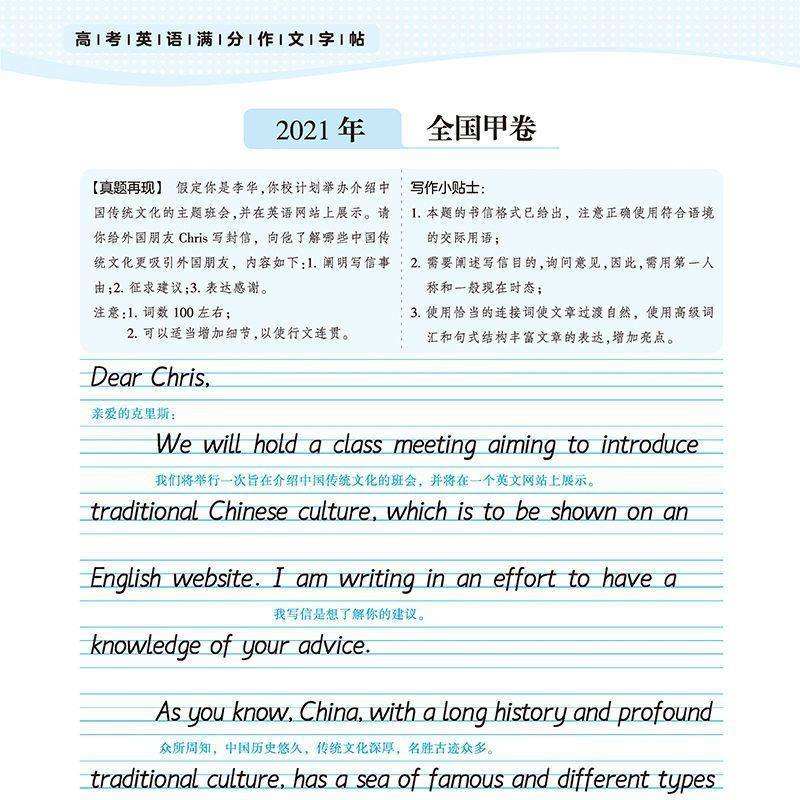 高考英语满分作文字帖
2021年 全国甲卷
【真题再现】 假定你是李华,你校计划举办介绍中
国传统文化的主题班会,并在英语网站上展示。请
你给外国朋友 Chris 写封信，向他了解哪些中国传
统文化更吸引外国朋友，内容如下:1. 阐明写信事
由;2. 征求建议;3. 表达感谢。
注意:1. 词数 100 左右;
2. 可以适当增加细节,以使行文连贯。
写作小贴士:
1. 本题的书信格式已给出，注意正确使用符合语境
的交际用语;
2. 需要阐述写信目的,询问意见,因此,需用第一人
称和一般现在时态;
3. 使用恰当的连接词使文章过渡自然，使用高级词
汇和句式结构丰富文章的表达,增加亮点。
Dear Chris,
亲爱的克里斯:
We will hold a class meeting aiming to introduce
我们将举行一次旨在介绍中国传统文化的班会，并将在一个英文网站上展示。
traditional Chinese culture, which is to be shown on an
English website. I am writing in an effort to have a
我写信是想了解你的建议。
knowledge of your advice.
As you know, China, with a long history and profound
众所周知，中国历史悠久，传统文化深厚，名胜古迹众多。
traditional culture, has a sea of famous and different types